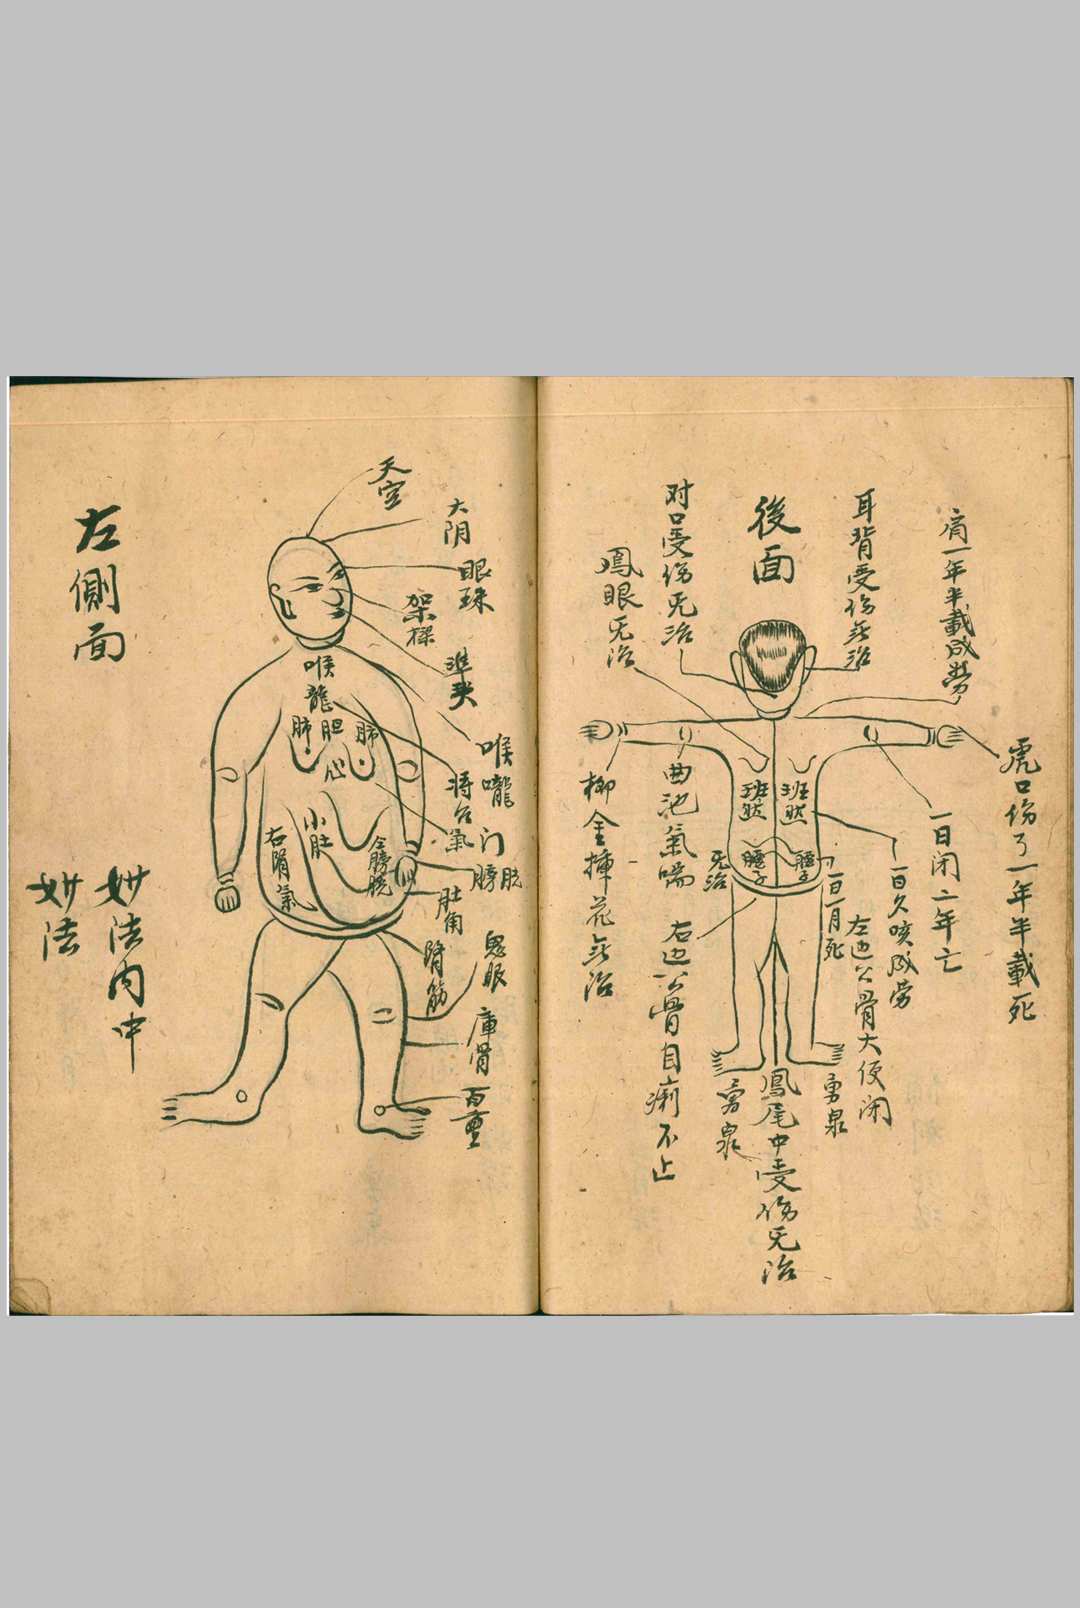 後面
肩一年半載成勞
耳背受伤無治
对口受伤无治
鳳眼无治
虎口伤了一年半載死
一日闭二年亡
一日久咳成勞
左边公骨大便闭
一日一月死
班然
班然
腰子
腰子
无治
曲池氣喘
柳金揷花無治
右边公骨自痢不止
勇泉
勇泉
鳳尾中受伤无治
左側面
天空
太阴
眼珠
架樑
準头
喉嚨
喉龍
肺
胆
肺
心
将台
氣门
膀胱
小肚
右
左膀胱
肚角
腎筋
鬼眼
庫骨
百重
妙法内中
妙法